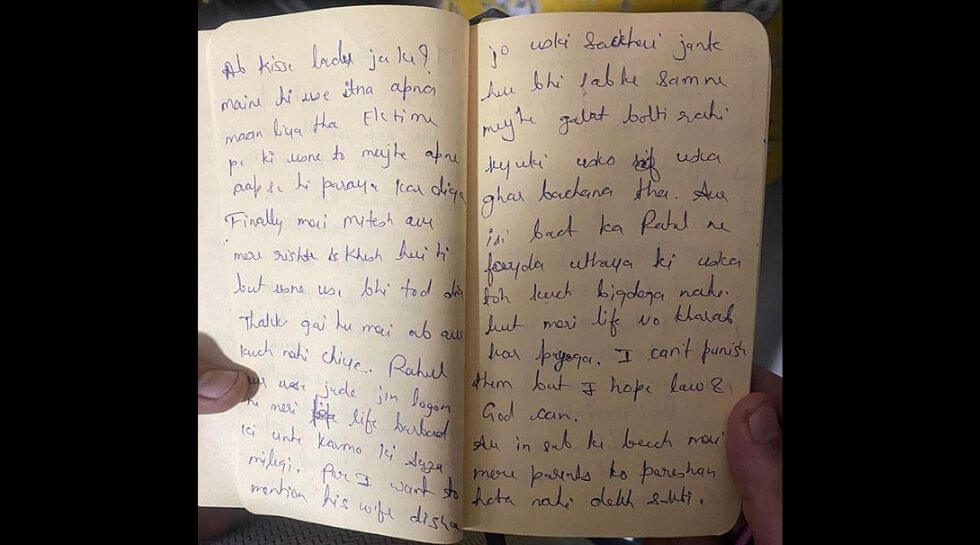 Ab kisse ladu jake?
maine hi use itna apna
maan liya tha Ek time
pe ki usne to mujhe apne
aapse hi paraya kar diya
Finally mai mitesh aur
mere rishte se khush hui thi
but usne use bhi tod dia
Thakk gai hu mai ab aur
kuch nahi chiye. Rahul
aur usse jude jin logon
ne meri life barbad
ki unke karmo ki saza
milegi. Par I want to
mention his wife disha
jo uski sachhai jante
hue bhi sabke samne
mujhe galat bolti rahi
kyuki usko uska
ghar bachana tha. Aur
isi baat ka Rahul ne
fayda uthaya ki uska
toh kuch bigdega nahi.
but meri life vo kharab
kar payega. I can't punish
them but I hope law &
God can.
Au in sab ke beech mai
mere parents ko pareshan
hota nahi dekh sakti.